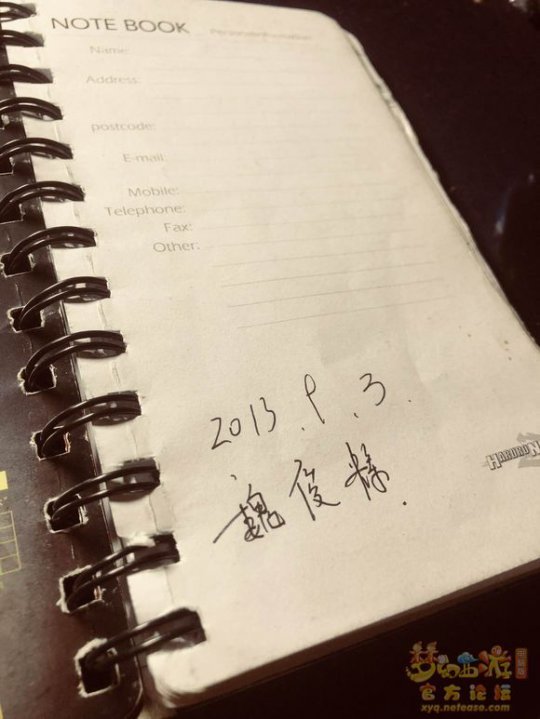 NOTE BOOK Personal Information
Name:
Address:
postcode:
E-mail
Mobile:
Telephone:
Fax:
Other:
2013.9.3.
魏俊
梦幻西游
官方论坛
xyq.netease.com